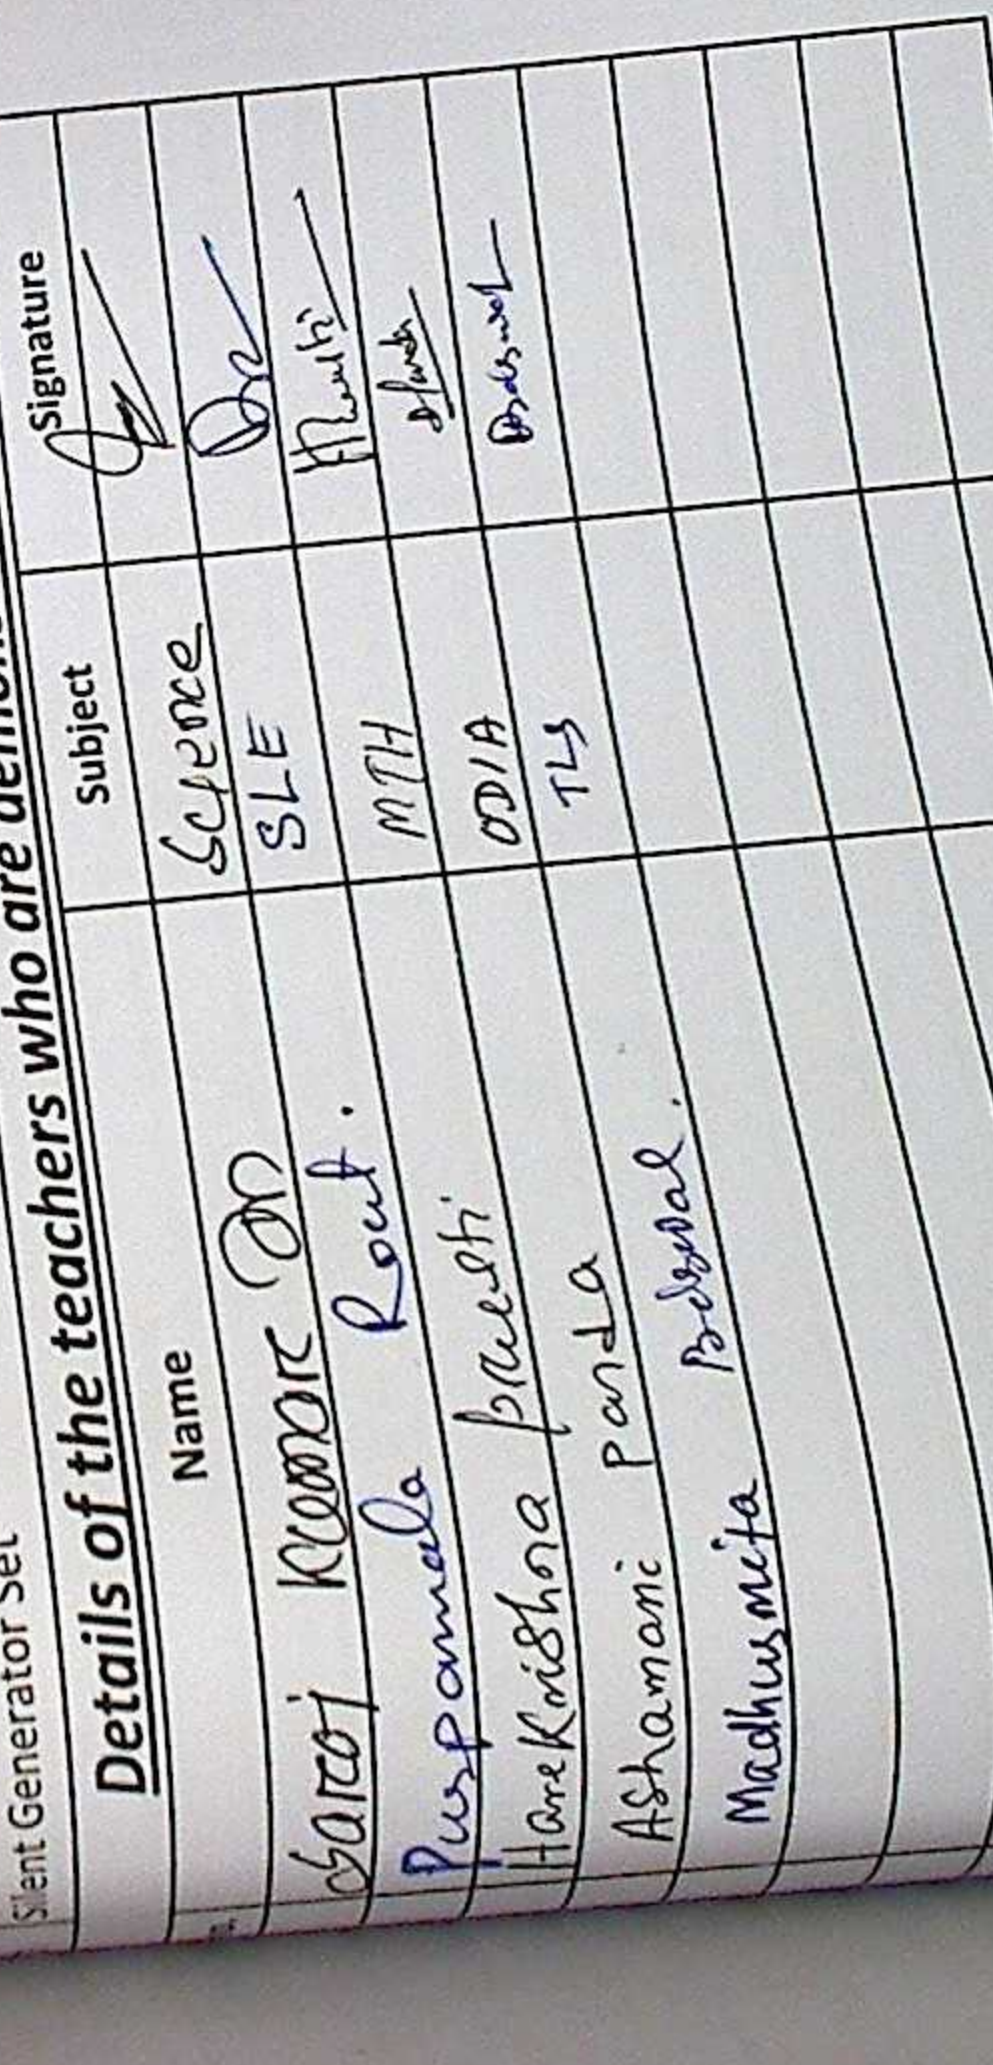 Silent Generator Set
Details of the teachers who are
Name Subject Signature
Saroj Kumar Science
Puspamala Rout. SLE
HareKrishna prusti MTH
AShamani panda ODIA
Madhusmita TLS